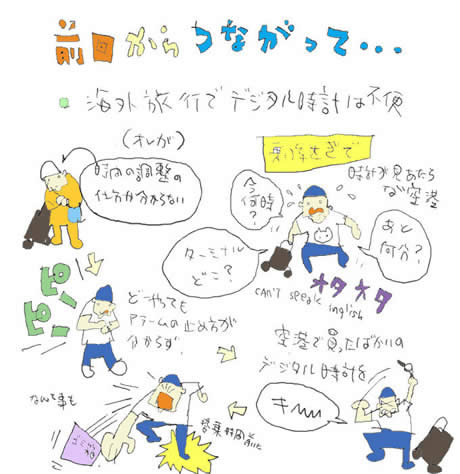 前回からつながって・・・
海外旅行でデジタル時計は不便
(オレが)
時間の調整の
仕方が分からない
乗り継ぎで
時計が見あたら
ない空港
今
何時
?
あと
何分?
ターミナル
どこ?
オタオタ
CAN'T speak inglish
ピピピ
どーやっても
アラームの止め方が
分からず
空港で買ったばかりの
デジタル時計を
キーッ
なんて事も
営業時間前に